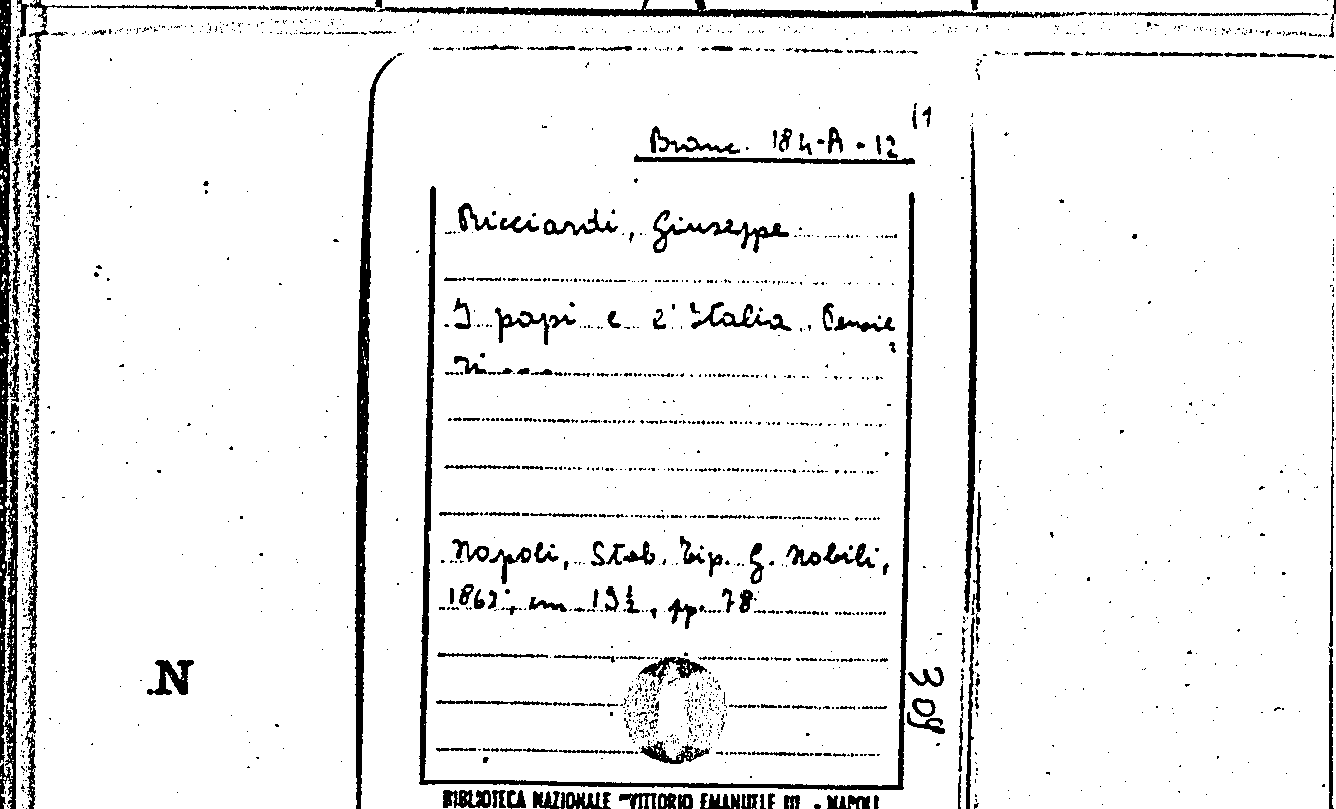 (1
Branc. 184-A-12
Ricciardi, Giuseppe
I papi e l'Italia.
Napoli, Stab. Tip. G. Nobili,
1862, cm 19½, pp. 78
309
.N
BIBLIOTECA NAZIONALE "VITTORIO EMANUELE III" - NAPOLI